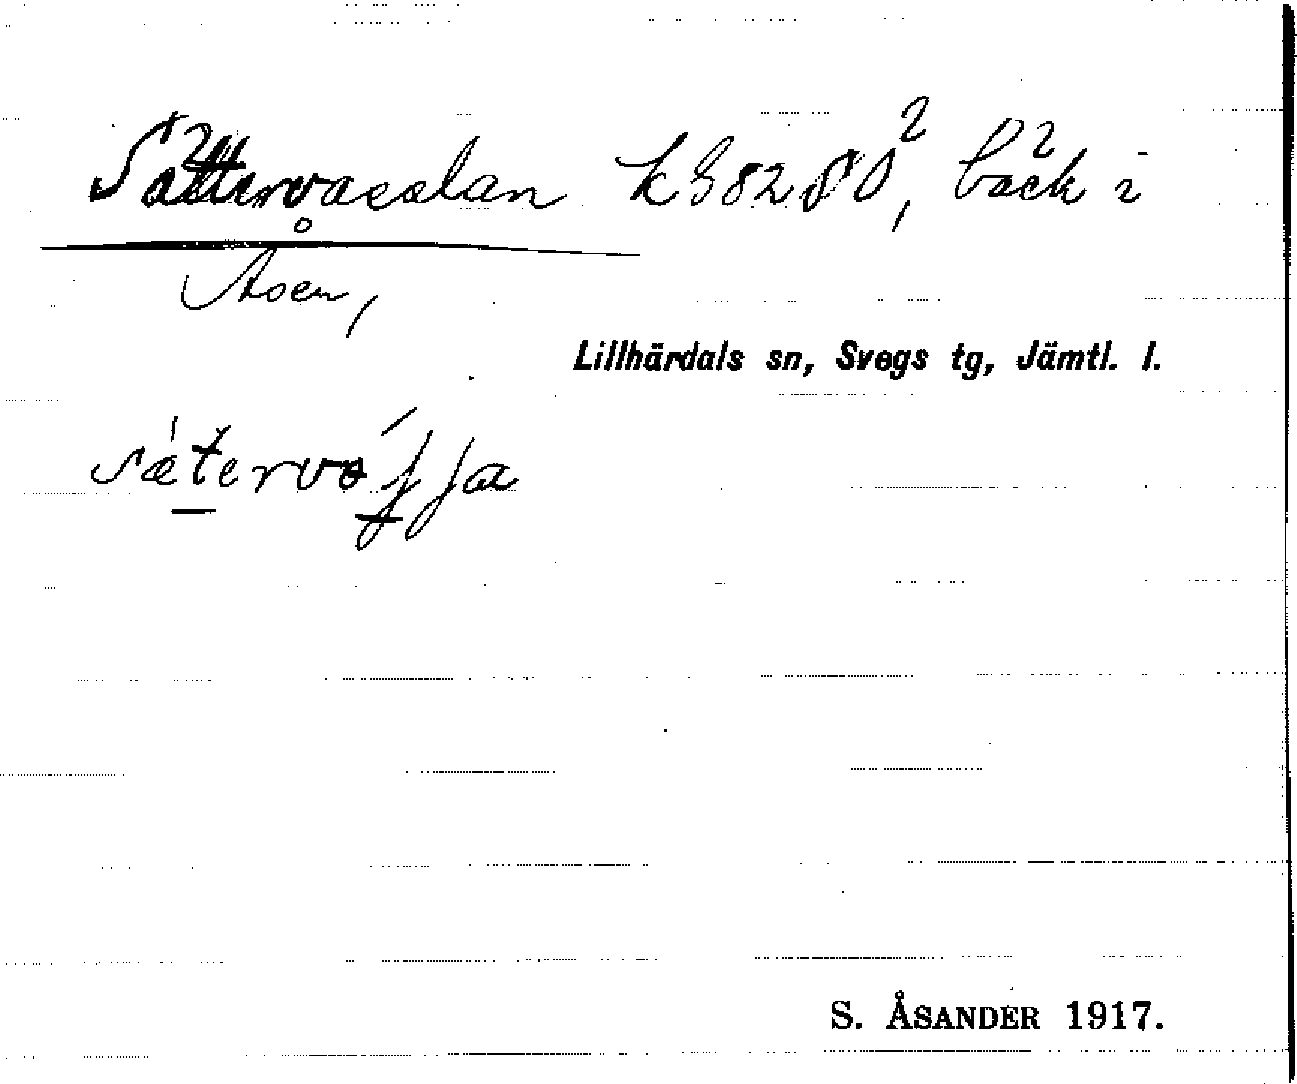 Sättervasslan k 3828D², bäck i
Åsen,
Lillhärdals sn, Svegs tg, Jämtl. l.
S. ÅSANDER 1917.